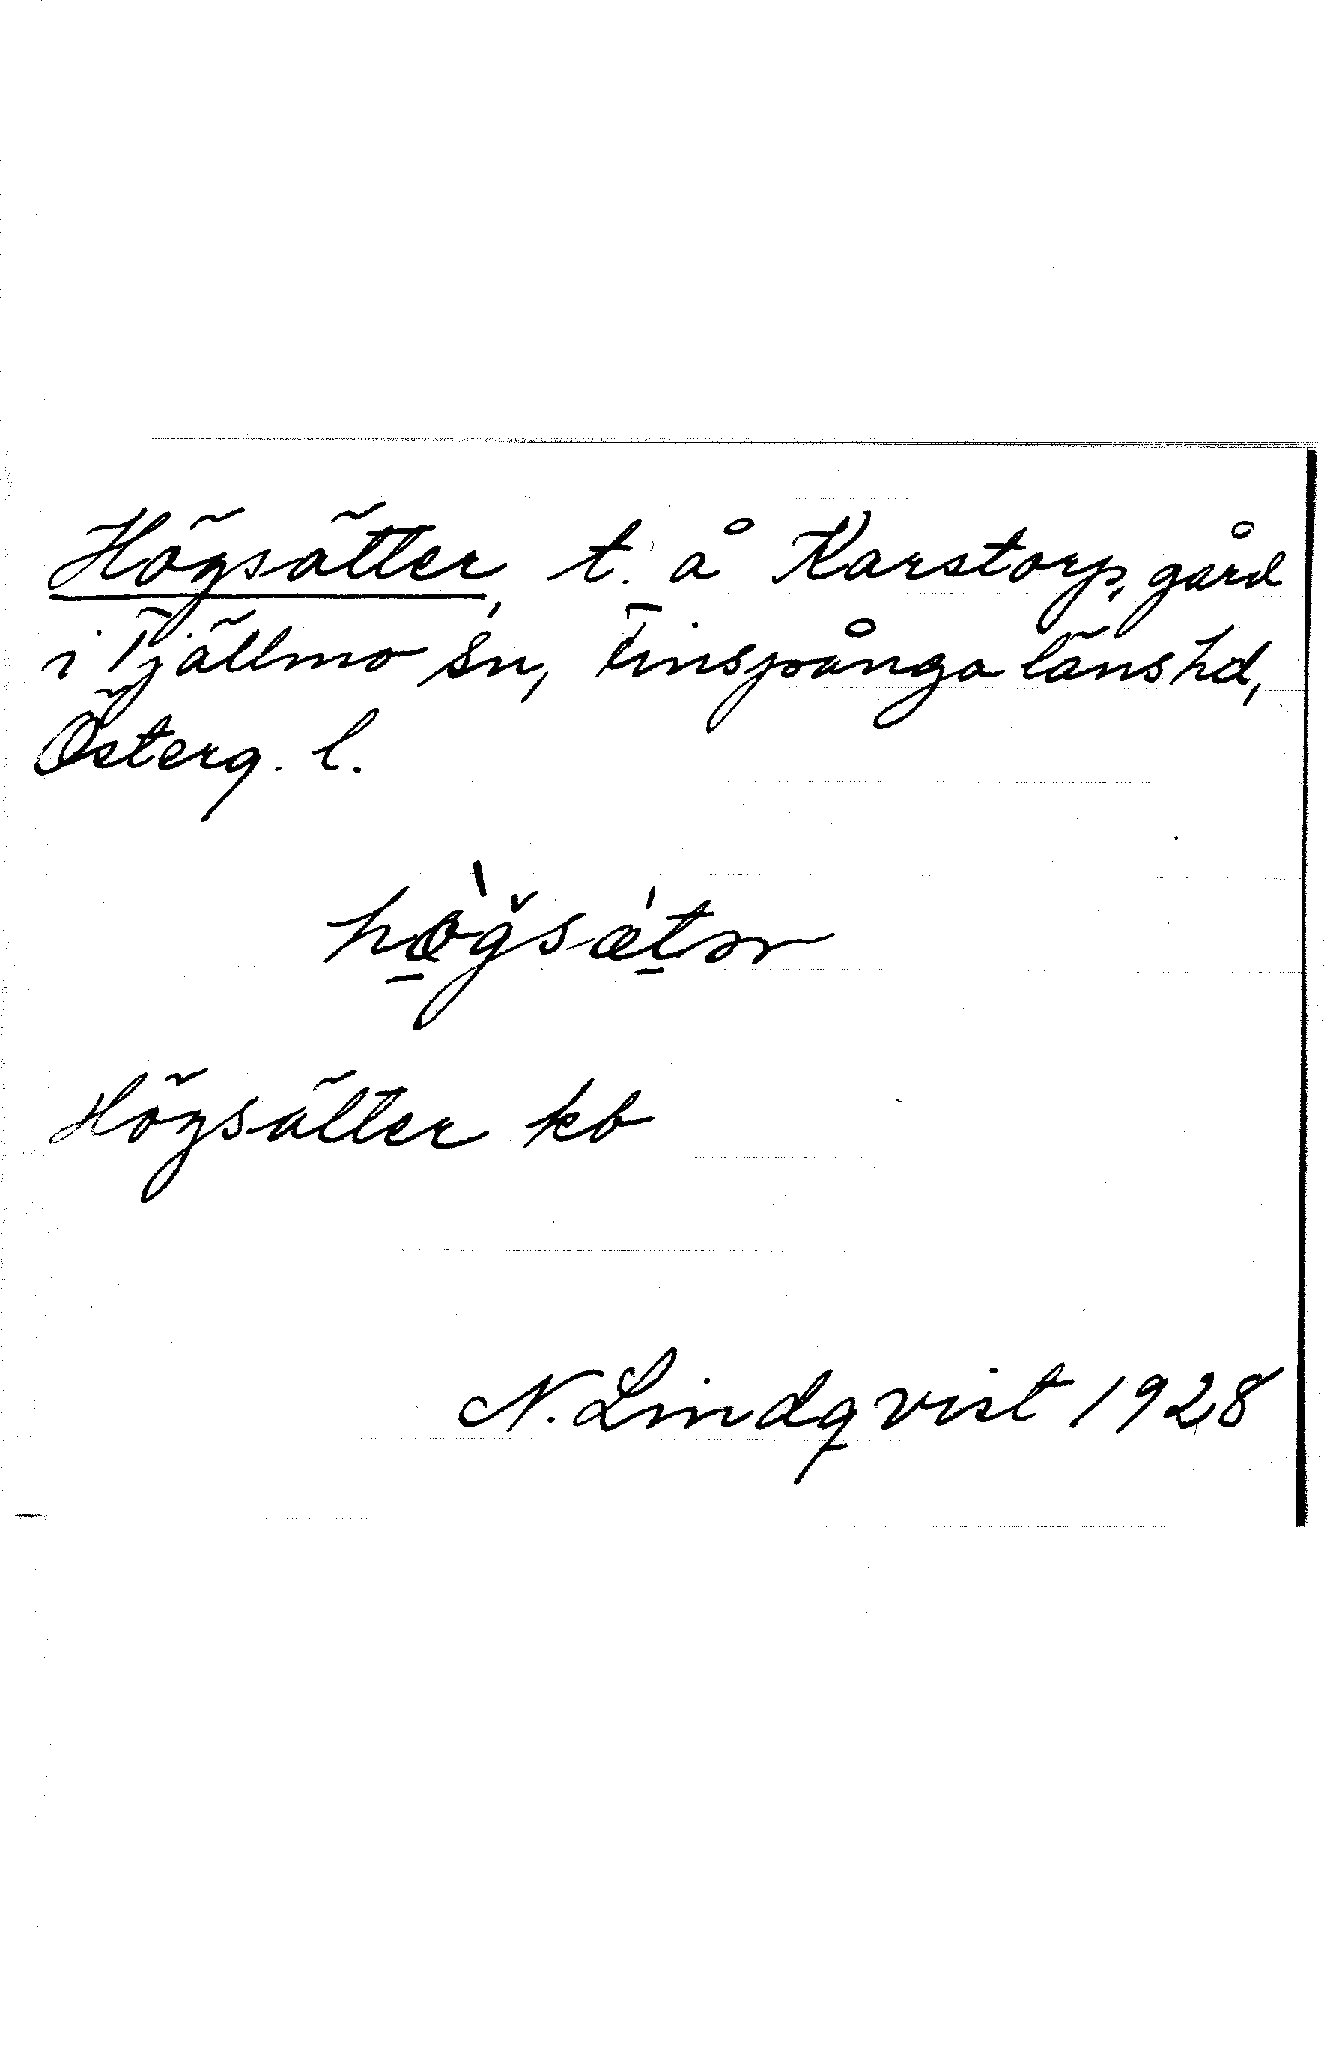 Högsätter, t. å Karstorp, gård
i Tjällmo sn, Finspånga läns hd,
Österg. l.
hø̀ǧsǽtər
Högsätter kb
N. Lindqvist 1928